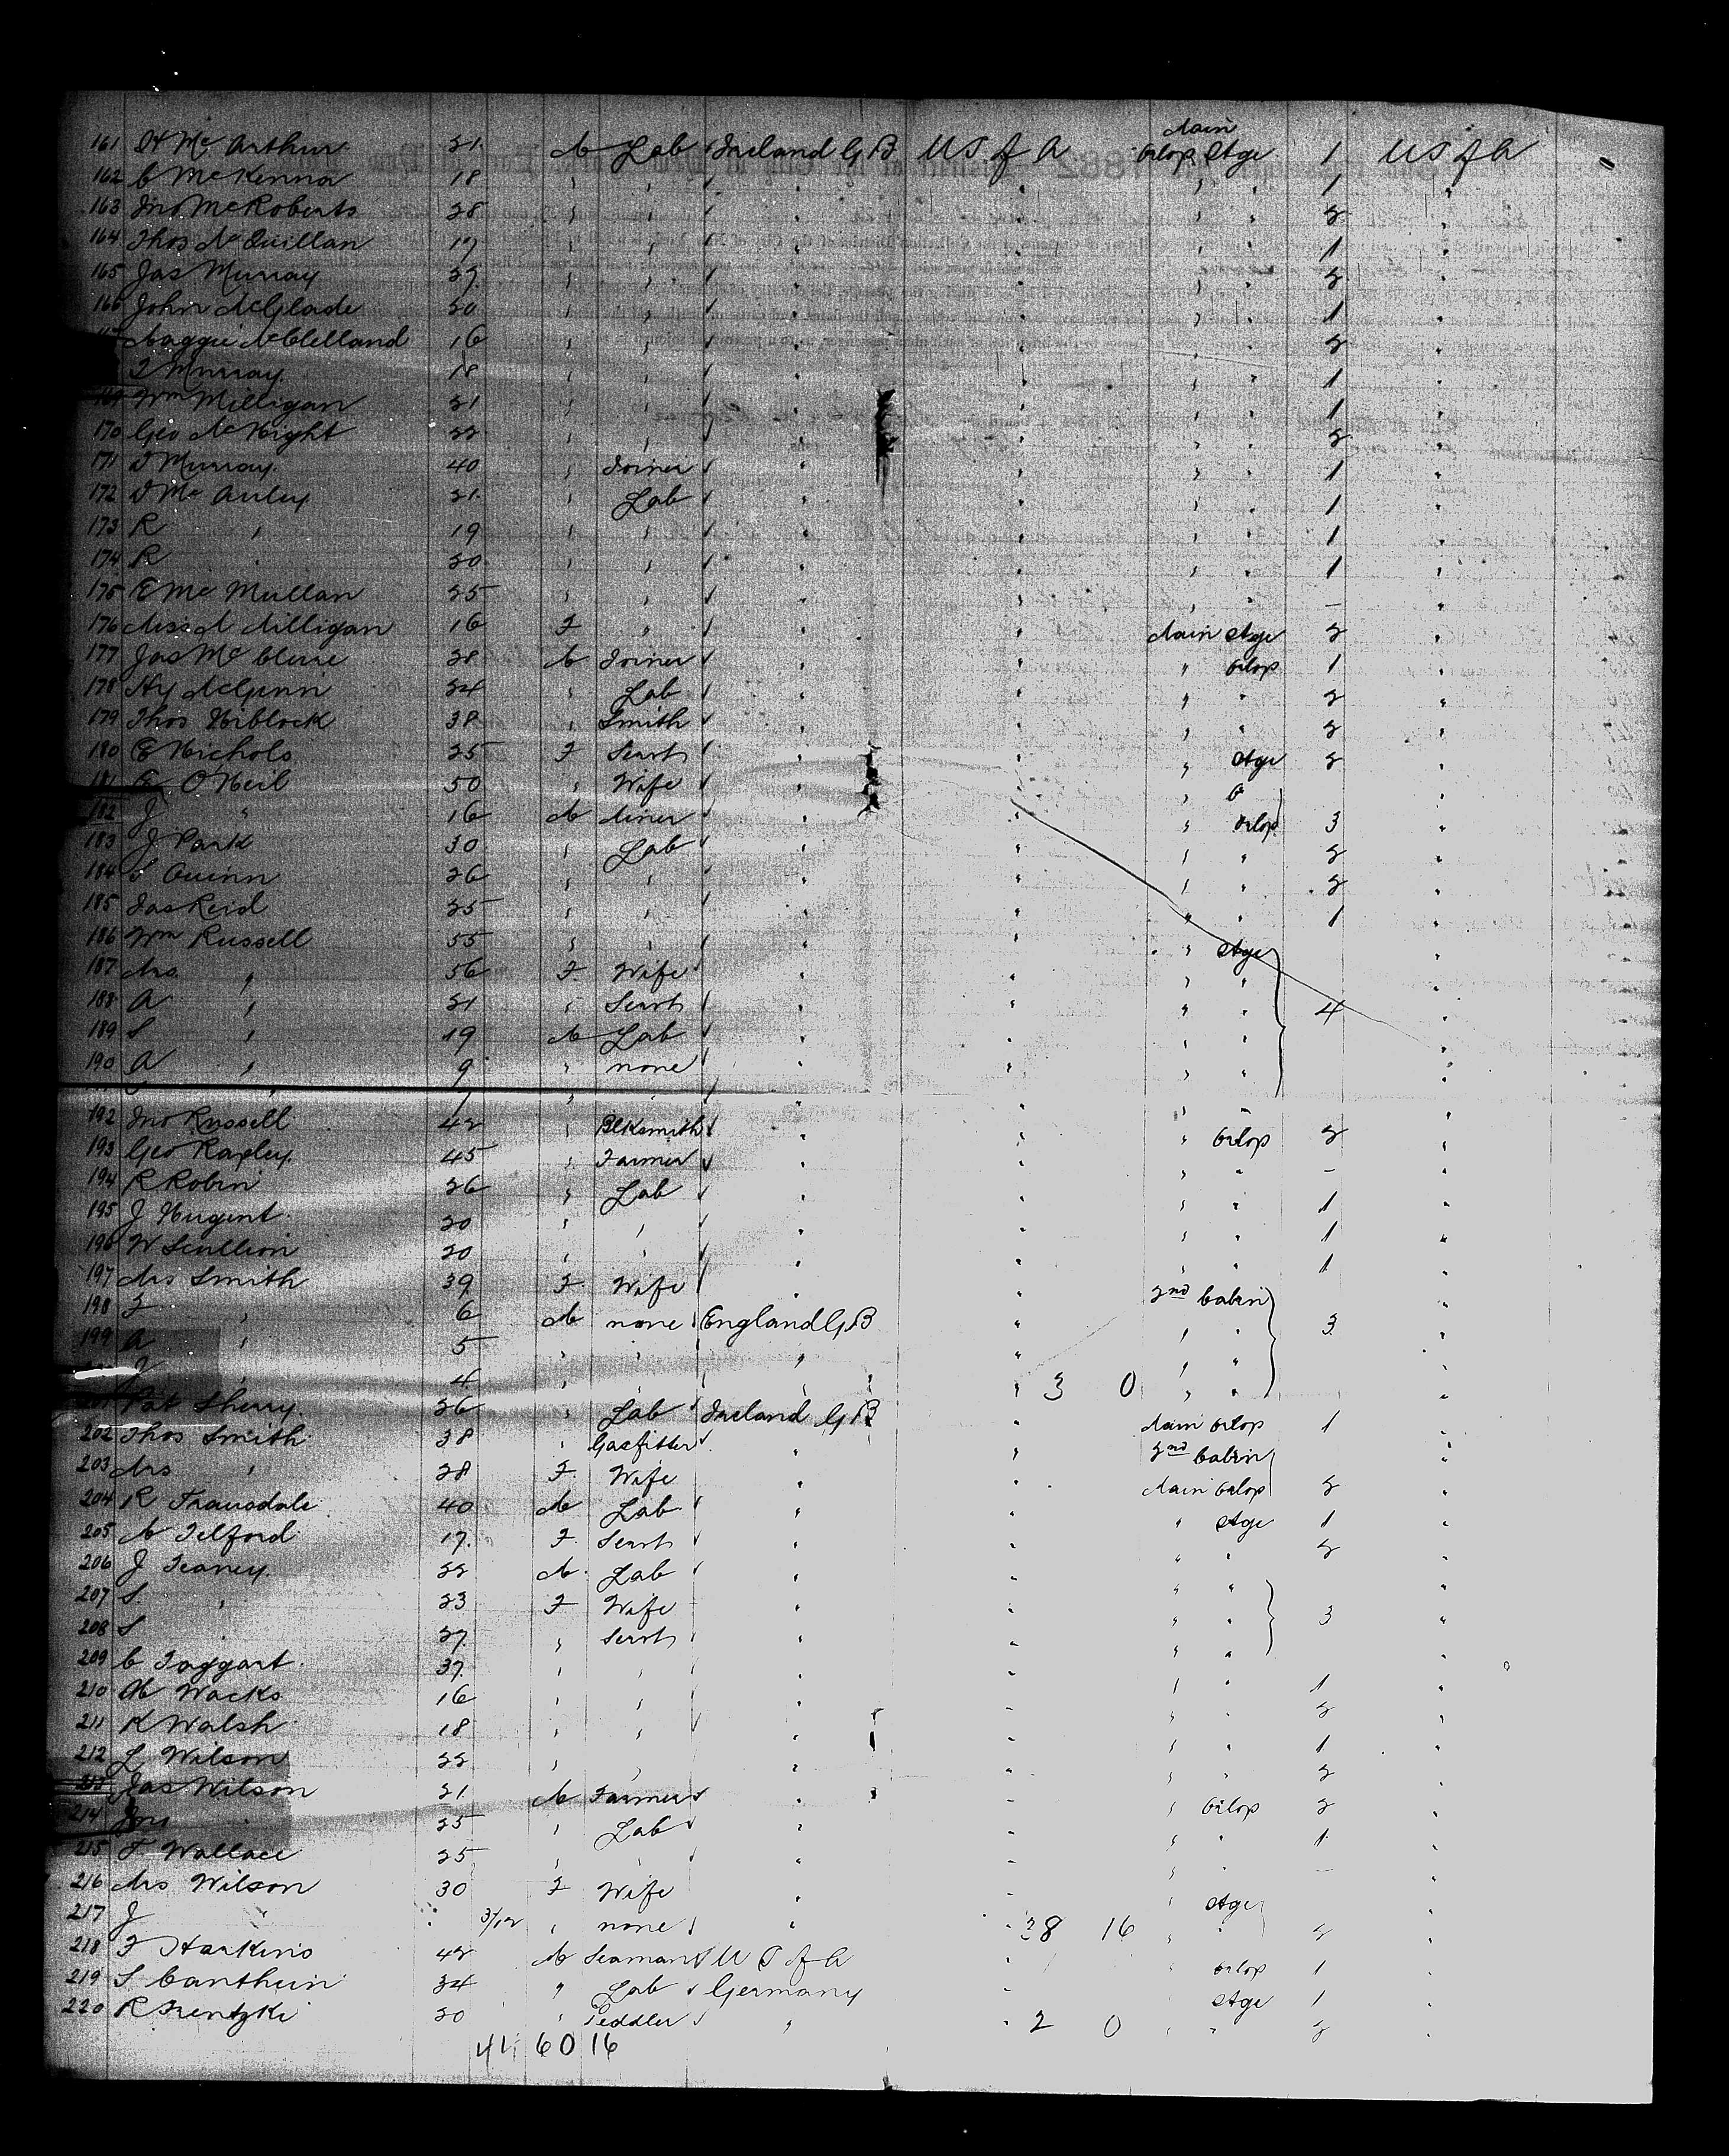 161 H Mc Arthur 21 M Lab Ireland G B U S of A Main Orlop Stge 1 U S of A
162 C McKenna 18 " " " " " " 1 "
163 Jno McRoberts 28 " " " " " " 2 "
164 Thos McQuillan 17 " " " " " " 1 "
165 Jas Murray 27 " " " " " " 2 "
166 John McGlade 20 " " " " " " 1 "
Maggie McClelland 16 " " " " " " 2 "
T Murray 18 " " " " " " 1 "
169 Wm Milligan 21 " " " " " " 1 "
170 Geo McKight 22 " " " " " " 2 "
171 D Murray 40 " Joiner " " " " 1 "
172 D Mc Auley 21 " Lab " " " " 1 "
173 R " 19 " " " " " " 1 "
174 R 20 " " " " " " 1 "
175 E Mc Mullan 25 " " " " " " – "
176 Miss M Milligan 16 F " " " Main Stge 2 "
177 Jas Mc Clure 28 M Joiner " " " Orlop 1 "
178 Hy McGinn 24 " Lab " " " " 2 "
179 Thos Niblock 38 " Smith " " " " 2 "
180 E Nichols 25 F Servt " " " Stge 2 "
181 O'Neil 50 " Wife " " " "
182 J " 16 M Miner " " " Orlop 3 "
183 J Park 30 " Lab " " " " 2 "
184 Quinn 26 " " " " " " 2 "
185 Jas Reid 25 " " " " " " 1 "
186 Wm Russell 55 " " " " " Stge "
187 Mrs " 56 F Wife " " " " "
188 A " 21 " Servt " " " " 4 "
189 S " 19 M Lab " " " " "
190 A " 9 " none " " " " "
192 Jno Russell 42 " Blksmith " " " Orlop 2 "
193 Geo Rapley 45 " Farmer " " " " – "
194 R Robin 26 " Lab " " " " 1 "
195 J Nugent 20 " " " " " " 1 "
196 W Scullion 20 " " " " " " 1 "
197 Mrs Smith 39 F Wife " " 2nd Cabin "
198 F " 6 M none England G B " " " 3 "
199 A " 5 " " " " " " "
J " 4 " " " " 3 0 " " "
Pat Sherry 26 " Lab Ireland G B " Main Orlop 1 "
202 Thos Smith 38 " Gasfitter " " 2nd Cabin "
203 Mrs " 28 F Wife " " Main Orlop 2 "
204 R Trausdale 40 M Lab " " " Stge 1 "
205 M Telford 17 F Servt " " " " 2 "
206 J Teaney 22 M Lab " " " " "
207 S " 23 F Wife " " " " 3 "
208 S " 27 " Servt " " " " "
209 C Taggart 37 " " " " " " 1 "
210 M Wacks 16 " " " " " " 2 "
211 K Walsh 18 " " " " " " 1 "
212 L Wilson 22 " " " " " " 2 "
213 Jas Wilson 21 M Farmer " " " Orlop 2 "
214 Jno 25 " Lab " " " " 1 "
215 T Wallace 25 " " " " " – "
216 Mrs Wilson 30 F Wife " " " Stge "
217 J " 3/12 " none " " 28 16 " " 2 "
218 F Harkins 42 M Seaman U S of A " Orlop 1 "
219 S Canthein 34 " Lab Germany " Stge 1 "
220 R Frentzki 20 " Peddler " " 2 0 " " 2 "
44 60 16